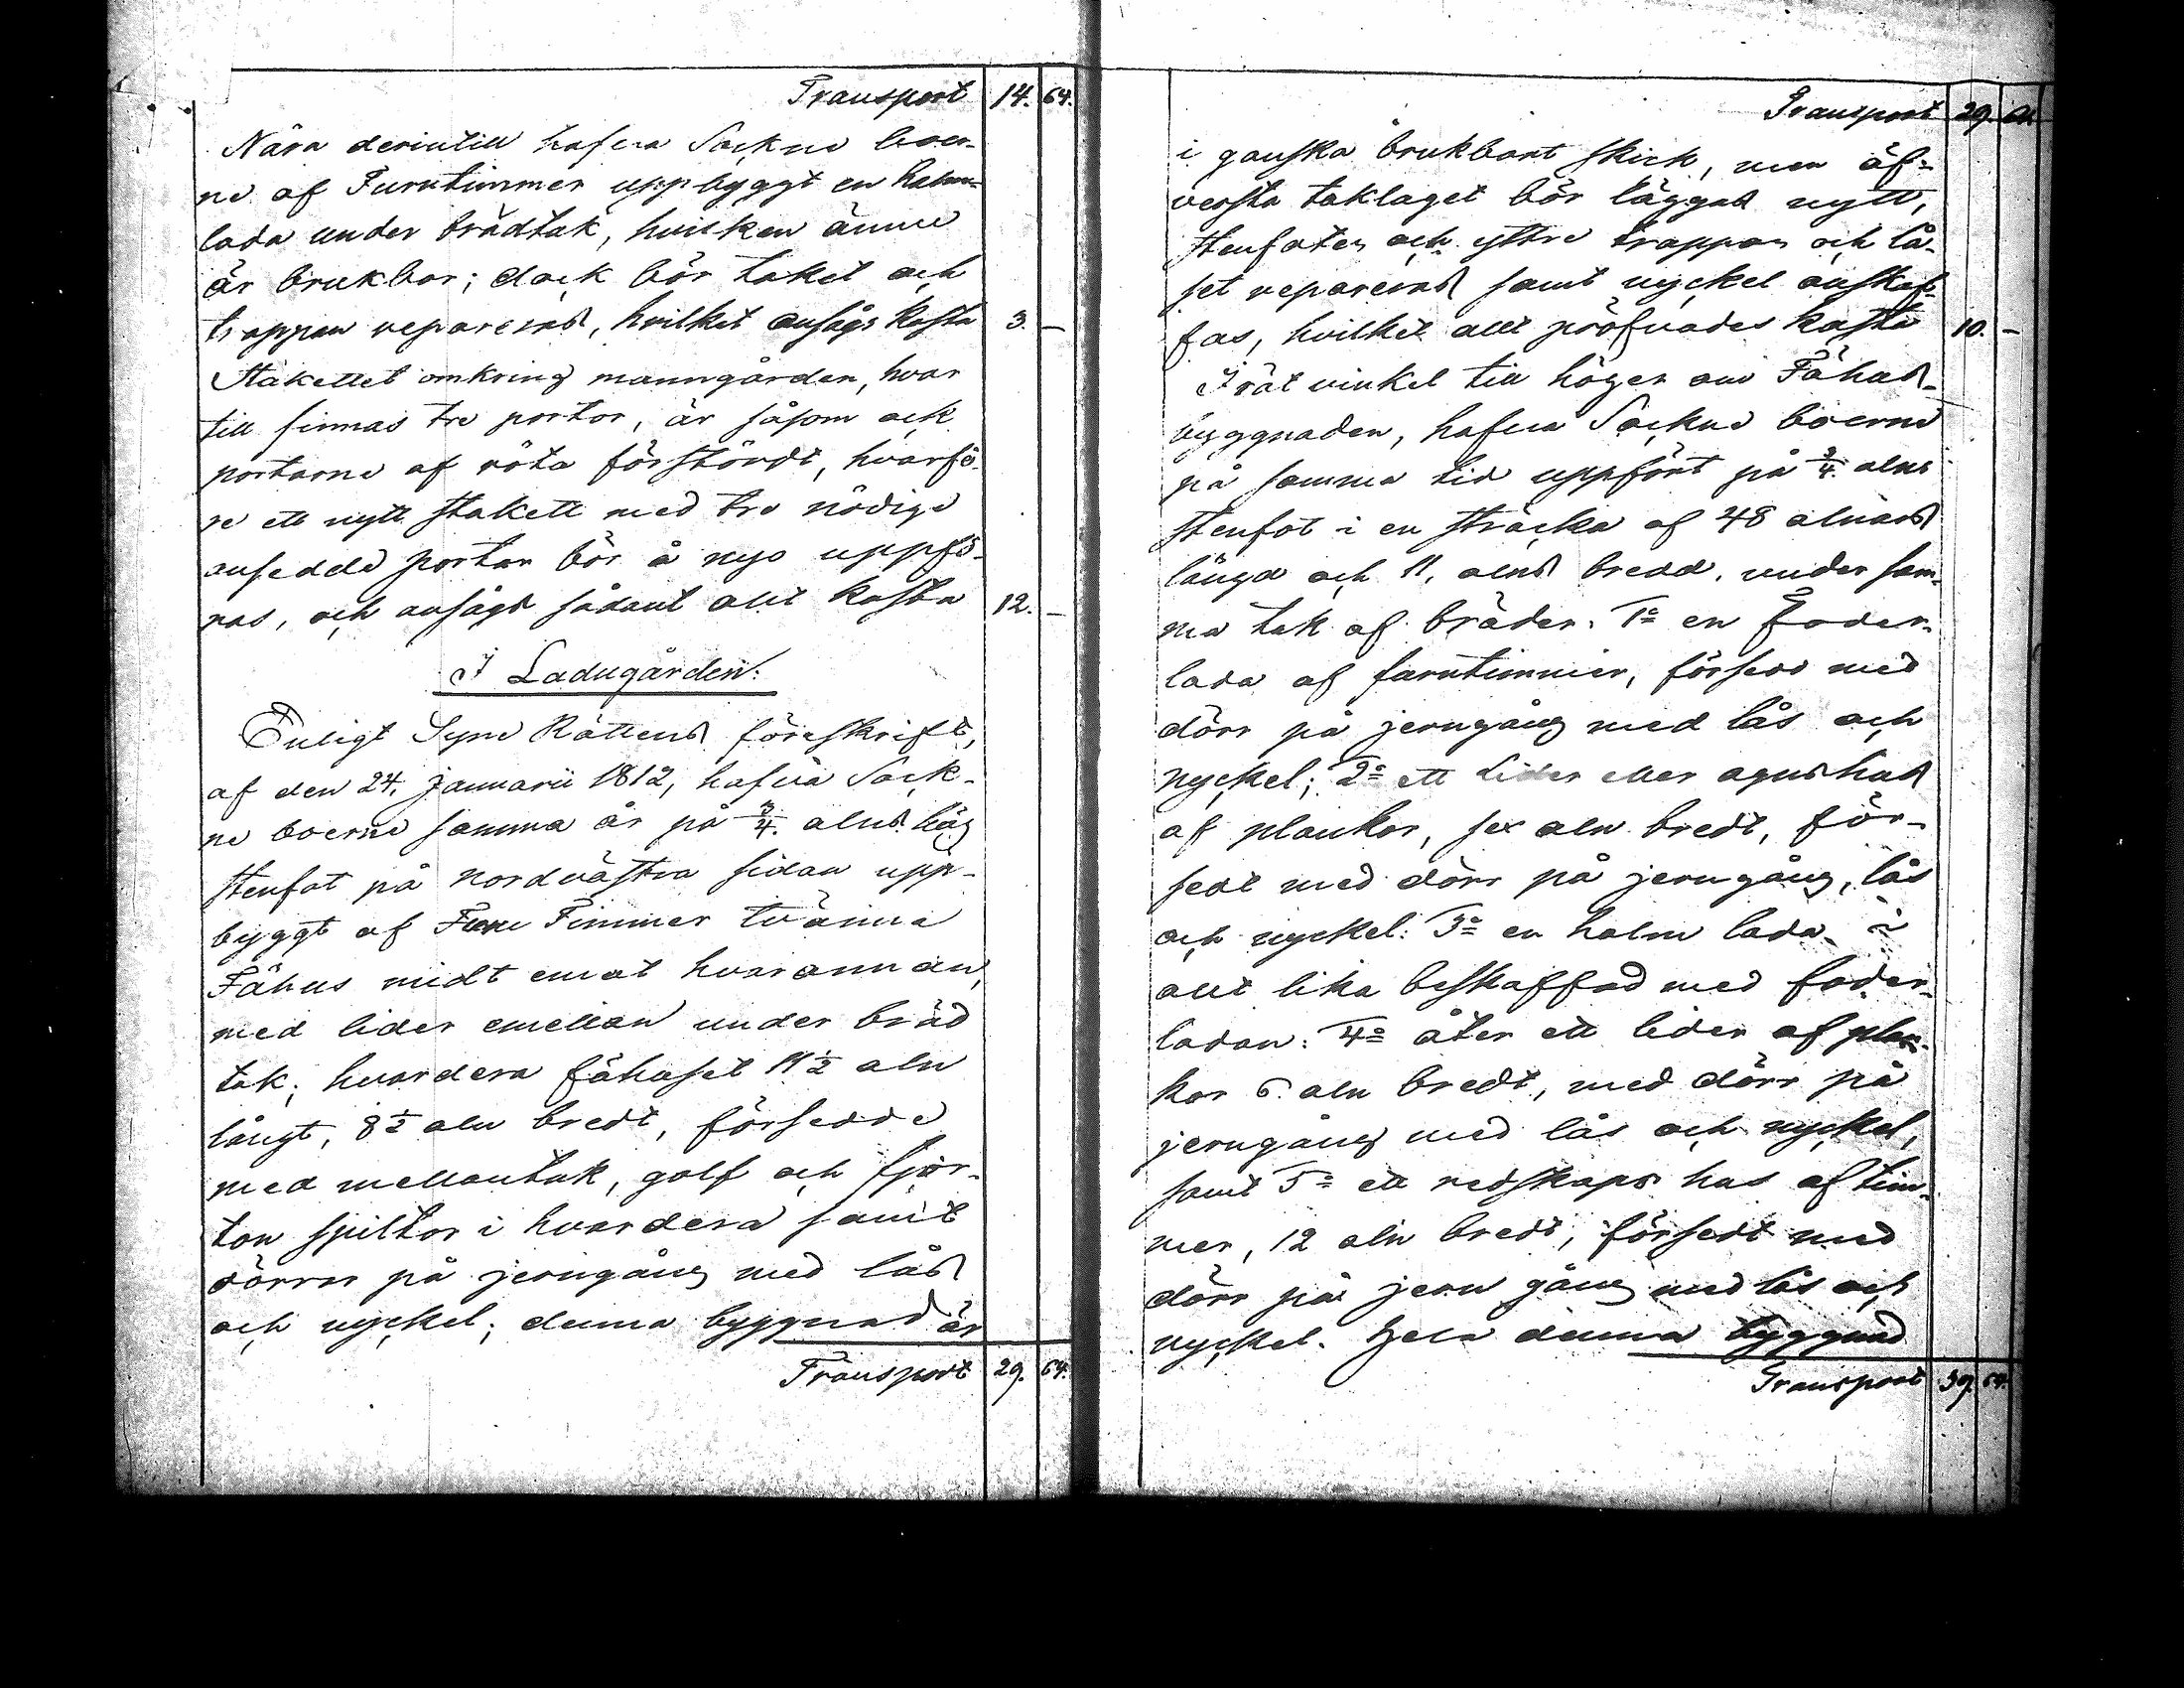 Transport 14. 64.
Nära derintill hafva Sockne boer-
ne af Furutimmer uppbyggt en halm-
lada under brädtak, hvilken ännu
är brukbar; dock bör taket och
trappan repareras, hvilket ansågs kosta 3. —
Stakettet omkring manngården, hvar
till finnas tre portar, är såsom ock
portarne af röta förstördt, hvarfö-
re ett nytt stakett med tre nödige
ansedde portar bör å nyo uppfö-
ras, och ansågs sådant allt kosta 12. —
I Ladugården:
Enligt Syne Rättens föreskrift,
af den 24. Januarii 1812, hafva Sock-
ne boerne samma år på 3/4. alns hög
stenfot på nordvästra sidan upp-
byggt af Furu Timmer tvänne
Fähus midt emot hvarannan,
med lider emellan under bräd
tak; hvardera fähuset 11 1/2 aln
långt, 8 1/2 aln bredt, försedde
med mellantak, golf och fjor-
ton spiltor i hvardera samt
dörrar på jerngång med lås
och nyckel; denna byggnad är
Transport 29. 64.
Transport 29. 64
i ganska brukbart skick, men öf-
versta taklaget bör läggas nytt,
stenfoten och yttre trappan och lå-
set repareras samt nyckel anskaf-
fas, hvilket allt pröfvades kosta 10. —
I rät vinkel till höger om Fähus-
byggnaden, hafva Sockne boerne
på samma tid uppfört på 3/4. alns
stenfot i en sträcka af 48 alnars
längd och 11, alns bredd, under sam-
ma tak af bräder. 1o en foder-
lada af furutimmer, försedd med
dörr på jerngång med lås och
nyckel; 2o ett lider eller agnshus
af plankor, sex aln bredt, för-
sedt med dörr på jerngång, lås
och nyckel: 3o en halm lada, i
allt lika beskaffad med foder-
ladan: 4o åter ett lider af plan-
kor 6. aln bredt, med dörr på
jerngång med lås och nyckel,
samt 5o ett redskaps hus af tim-
mer, 12 aln bredt, försedt med
dörr på jern gång med lås och
nyckel. Hela denna byggnad
Transport 39. 64.